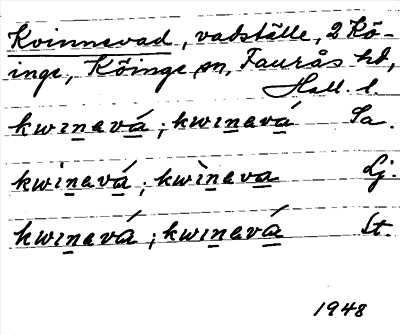 Kvinnevad, vadställe, 2 Kö-
inge, Köinge sn, Faurås hd,
Hall. l.
kwinavá; kwinavá Sa.
kwìnavá; kwìnava Lj.
kwinavá; kwinavá St.
1948